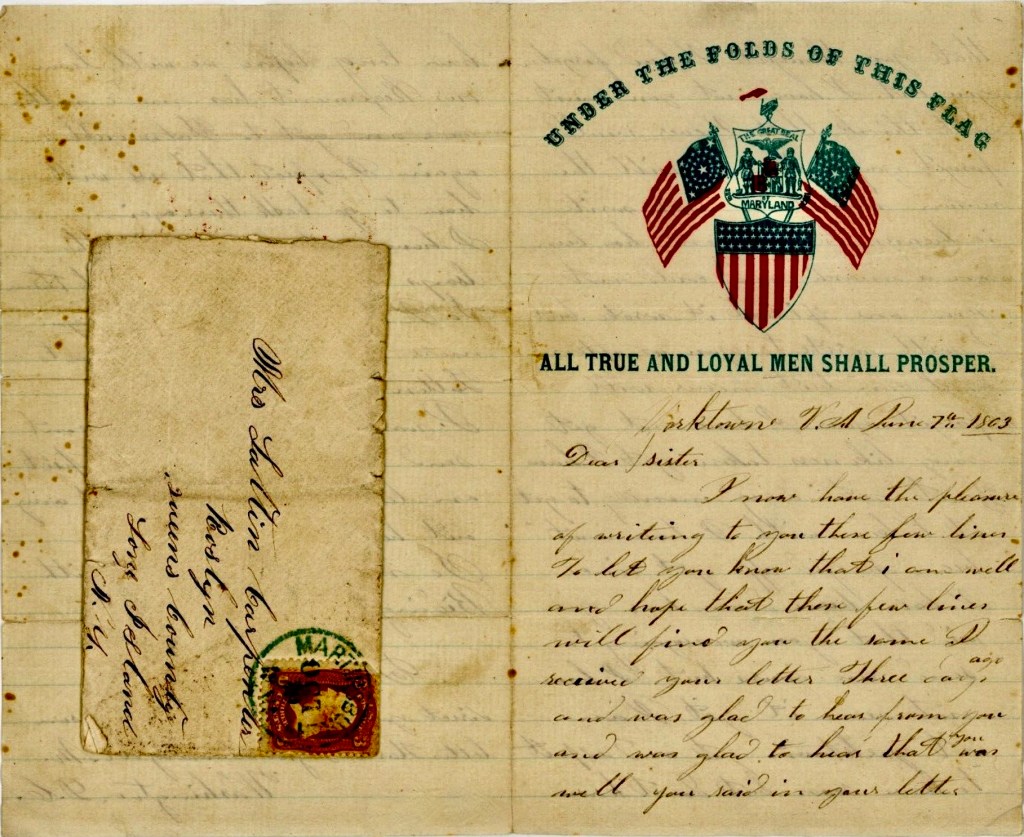 Mrs Sattin Carpenter
Roslyn
Queens County
Long Island
N. Y.
MAR
UNDER THE FOLDS OF THIS FLAG
THE GREAT SEAL
OF
MARYLAND
ALL TRUE AND LOYAL MEN SHALL PROSPER.
Yorktown V.A June 7th 1863
Dear Sister
I now have the pleasure
of writing to you these few lines
To let you know that i am well
and hope that these few lines
will find you the same I
received your letter Three days ago
and was glad to hear from you
and was glad to hear that you was
well you said in your letter